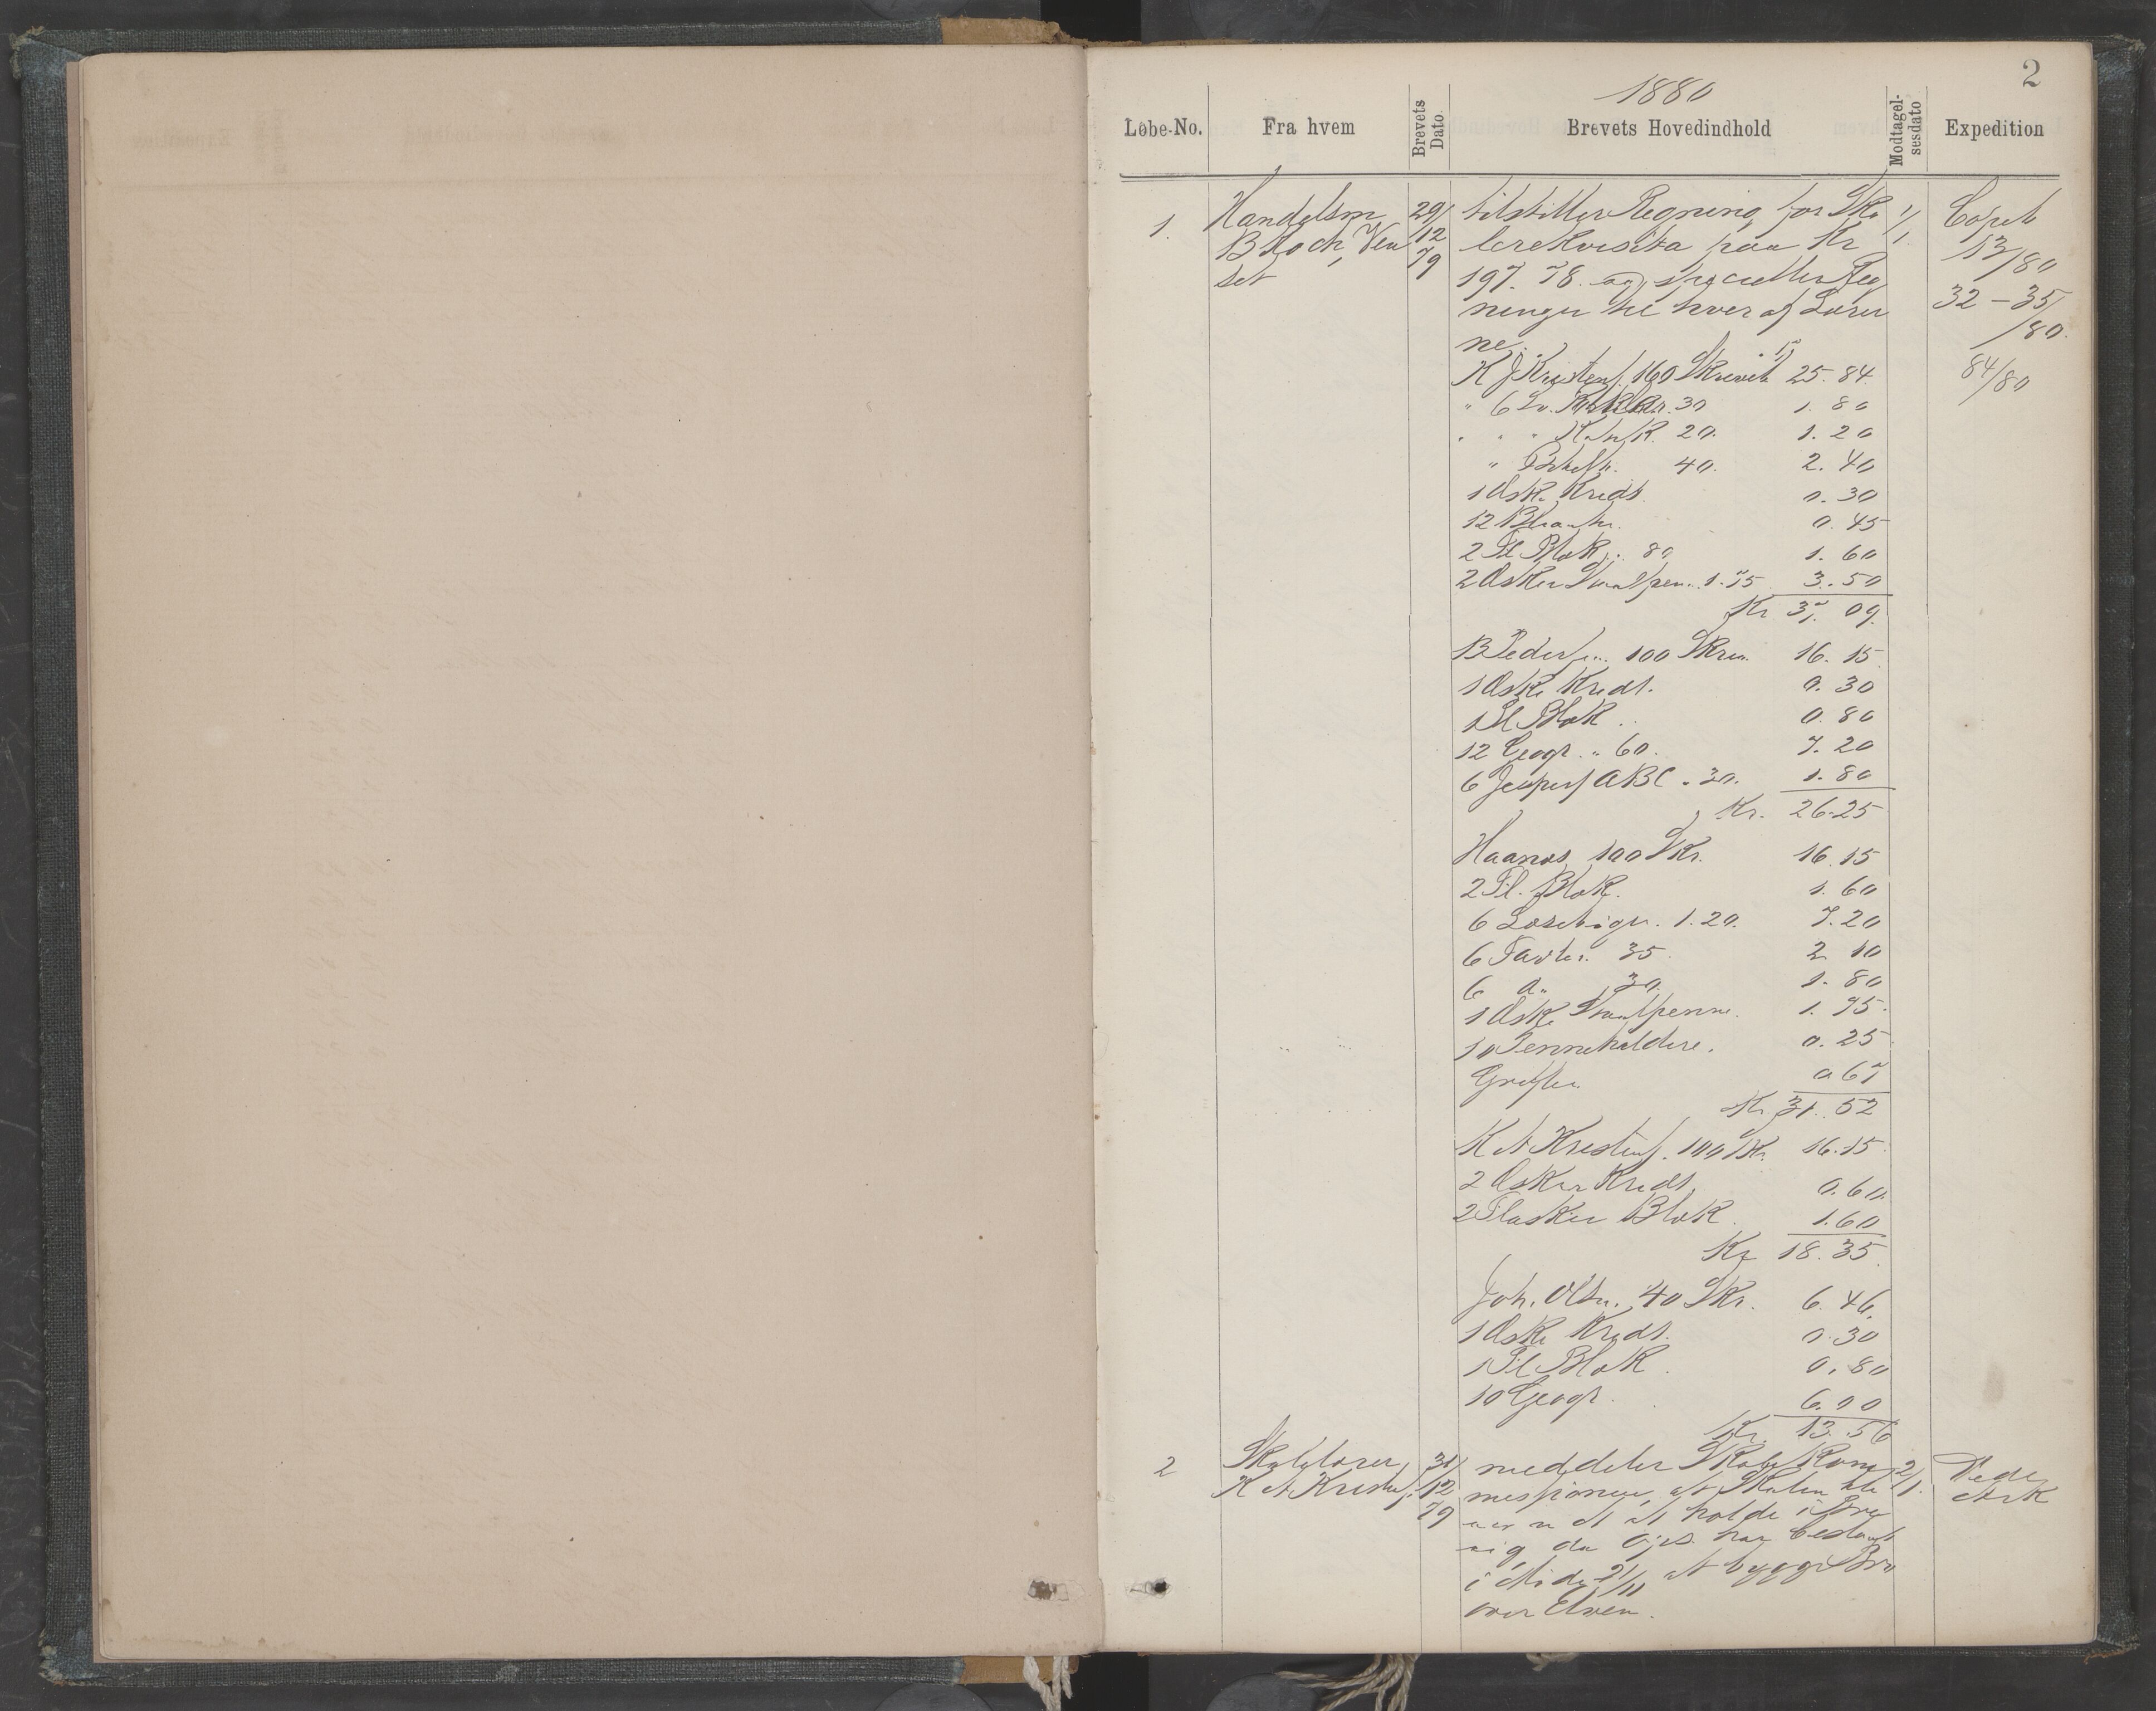 2
1880
Løbe-No. Fra hvem Brevets Dato Brevets Hovedindhold Modtagelsesdato Expedition
1. Handelsm 29/12 79 tilstiller Regning for Sko 1/1 Copib
B Koch, Ven lerekvisita paa Kr 13/80
set 197.78. og specielle Reg 32-35/80
ninger til hver af Lærer 84/80
ne:
K J Kristens. 160 Skriveb 25.84
" 6 Lv. 30 1.80
" " " 20. 1.20
" 40. 2.40
1 Æske Kridt. 0.30
12 0.45
2 Fl Blæk. 80 1.60
2 Æsker Staalpen. 1.75 3.50
Kr 37.09.
B Peders... 100 Skriv. 16.15
1 Æske Kridt. 0.30
1 Fl Blæk .. 0.80
12 Geogr. " 60. 7.20
6 Jespers ABC " 30. 1.80
Kr. 26.25
Haanæs 100 Skr. 16.15
2 Fl. Blæk. 1.60
6 Læsebøger. 1.20. 7.20
6 Tavler. 35 2.10
6 do 30. 1.80
1 Æske Staalpenne. 1.75.
10 Penneholdere. 0.25
Grifler. 0.67
Kr 31.52
K A Kristens. 100 Skr. 16.15
2 Æsker Kridt. 0.60.
2 Flasker Blæk. 1.60
Kr 18.35.
Joh. Olsn. 40 Skr. 6.46.
1 Æske Kridt. 0.30
1 Fl Blæk. 0.80
10 Geogr. 6.00
Kr. 13.56
2 Skolelærer 31/12 79 meddeler Skole Kom 2/1. Vede
K A Kristens. missionen, at Skolen ble Ark
at holde i Bre
vig, da Ops. har bestemt
i Møde 21/11 at bygge Bro
over Elven.